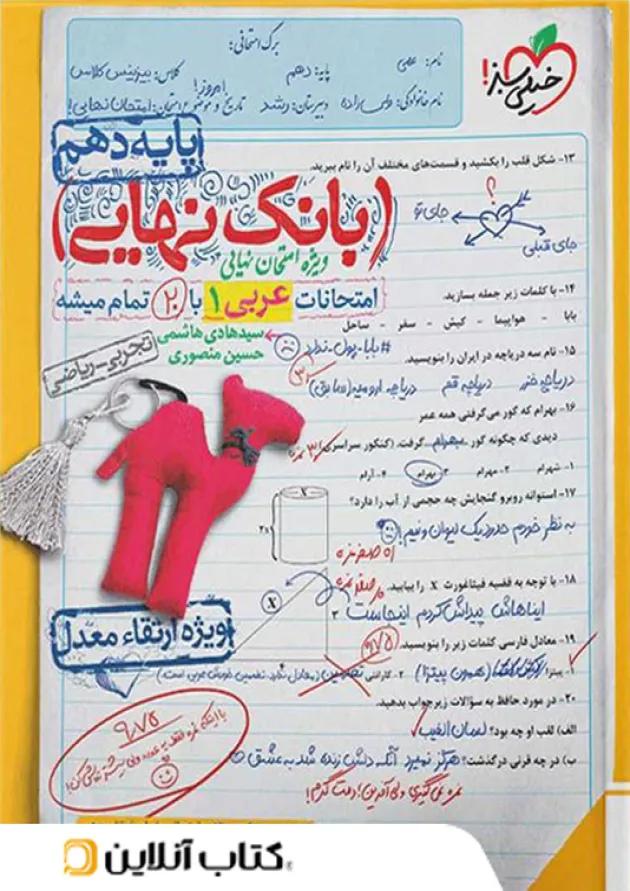 خیلی سبز!
برگ امتحانی:
نام: عمی
پایه: دهم
کلاس: بیزینس کلاس
نام خانوادگی:
دبیرستان: رشد
تاریخ و موضوع امتحان: امروز! امتحان نهایی!
پایه دهم
۱۳- شکل قلب را بکشید و قسمت‌های مختلف آن را نام ببرید.
؟
جای تو
جای قبلی
(بانک نهایی)
ویژه امتحان نهایی
امتحانات عربی ۱ با ۲۰ تمام میشه
سیدهادی هاشمی
حسین منصوری
تجربی-ریاضی
۱۴- با کلمات زیر جمله بسازید.
بابا - هواپیما - کیش - سفر - ساحل
#بابا-پول-ندارد
۱۵- نام سه دریاچه در ایران را بنویسید.
دریاچه خزر دریاچه قم دریاچه ارومیه (سابق)
۱۶- بهرام که گور می‌گرفتی همه عمر
دیدی که چگونه گور بهرام گرفت. (کنکور سراسری
۱- شهرام ۲- مهرام ۳- بهرام ۴- آرام
۱۷- استوانه روبرو گنجایش چه حجمی از آب را دارد؟
به نظر خودم حدود یک لیوان و نیم!
X
۲X
۱۸- با توجه به قضیه فیثاغورث X را بیابید.
ایناهاش پیداش کردم اینجاست
X
۲
ویژه ارتقاء معدل
۱۹- معادل فارسی کلمات زیر را بنویسید.
۹/۷۵
۱- پیتزا (همون پیتزا) ۲- گارانتی
۲۰- در مورد حافظ به سؤالات زیر جواب بدهید.
الف) لقب او چه بود؟ لسان الغیب
ب) در چه قرنی درگذشت؟ هرگز نمیرد آنکه دلش زنده شد به عشق
نمره نمی‌گیری ولی آفرین! دمت گرم!
۹/۷۵
کتاب آنلاین